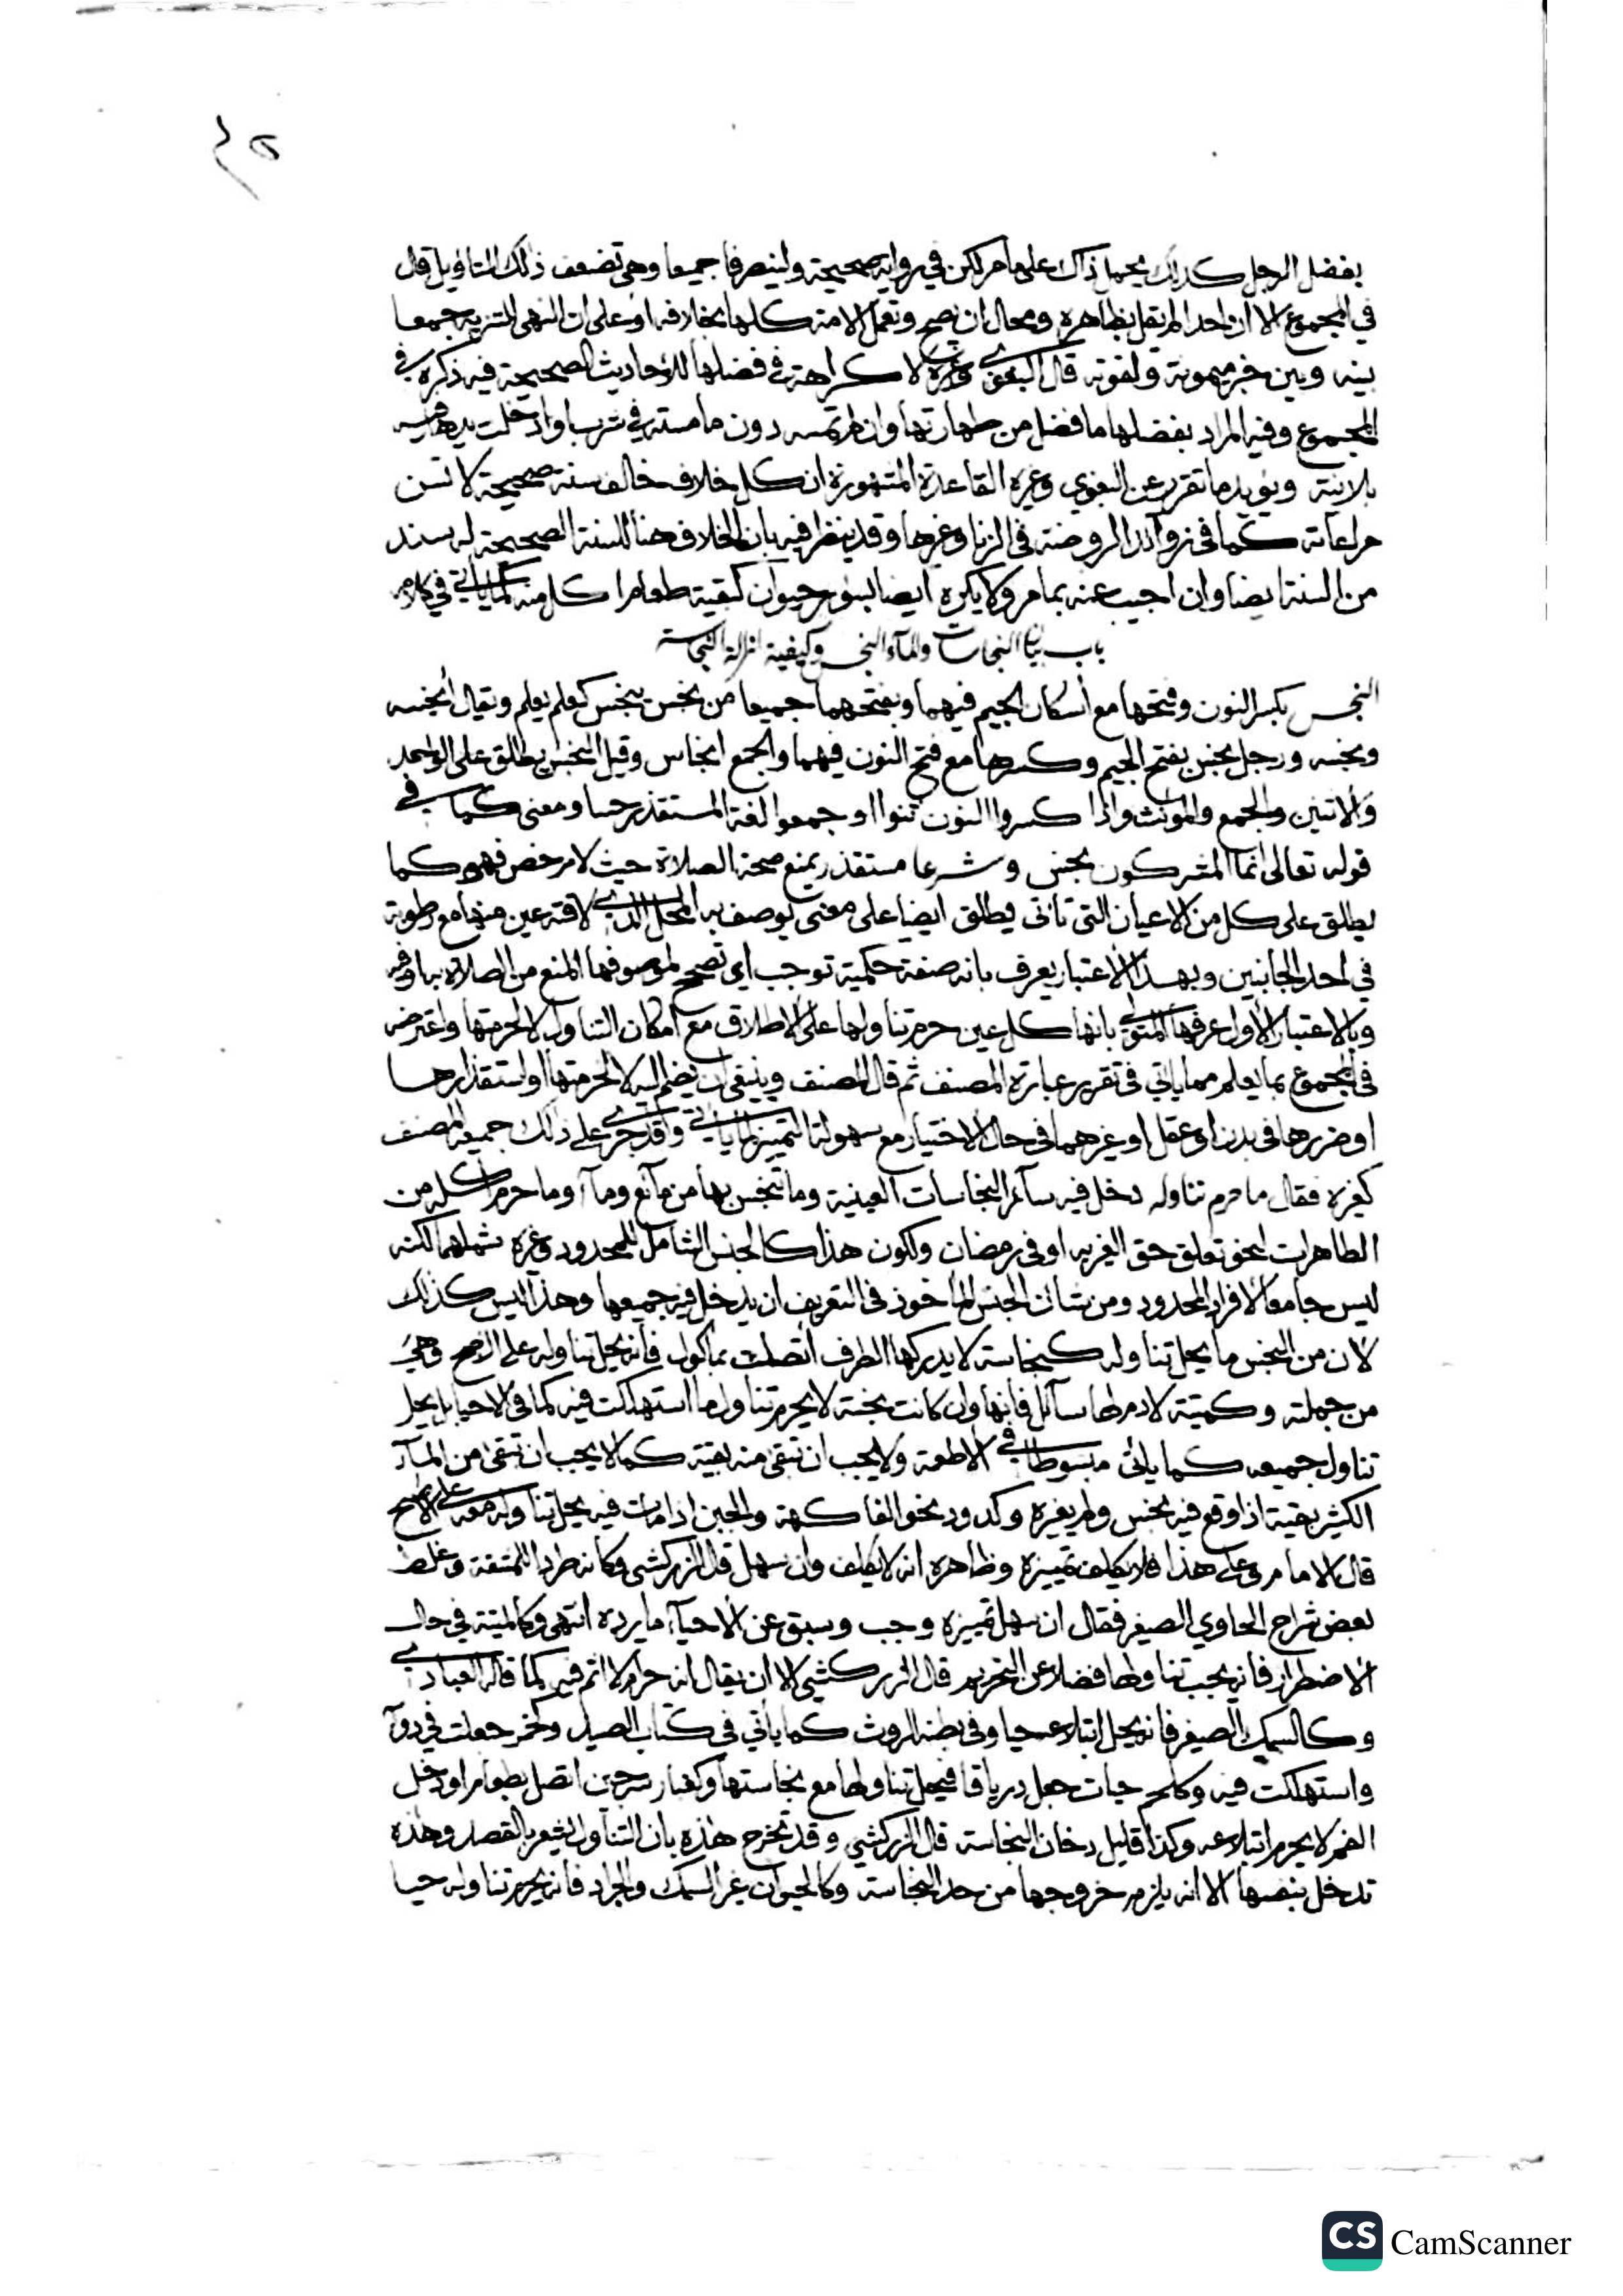 بفضل الرجل كذلك يحمل ذاك على ما مر لكن في رواية صحيحة وليغترفا جميعا وهي تضعف ذلك التاويل قال
في المجموع الا ان احدا لم يقل بظاهره ومحال ان يصح وتعمل الامة كلها بخلافه او على ان النهي للتنزيه جمعا
بينه وبين خبر ميمونة ولقوته قال البغوي وغيره لا كراهة في فضلها للاحاديث الصحيحة فيه ذكره في
المجموع وفيه المراد بفضلها ما فضل من طهارتها وان لم تمسه دون ما مسته في شرب او ادخلت يدها فيه
بلا نية ويؤيد ما تقرر عن البغوي وغيره القاعدة المشهورة ان كل خلاف خالف سنة صحيحة لا تسن
مراعاته كما في زوائد الروضة في الزنا وغيرها وقد ينظر فيه بان الخلاف هنا للسنة الصحيحة له سند
من السنة ايضا وان اجيب عنه بما مر ولا يكره ايضا بسؤر حيوان كبقية طعام اكل منه كما ياتي في كلامه
باب بيان النجاسات والماء النجس وكيفية ازالة النجاسة
النجس بكسر النون وفتحها مع اسكان الجيم فيهما وبفتحهما جميعا من نجس ينجس كعلم يعلم ويقال انجسه
ونجسه ورجل نجس بفتح الجيم وكسرها مع فتح النون فيهما والجمع انجاس وقيل النجس يطلق على الواحد
والاثنين والجمع والمؤنث واذا كسروا النون ثنوا او جمعوا لغة المستقذر حسا ومعنى كما في
قوله تعالى انما المشركون نجس وشرعا مستقذر يمنع صحة الصلاة حيث لا مرخص فهو كما
يطلق على كل من الاعيان التي تاتي يطلق ايضا على معنى يوصف به المحل الذي لاقته عين منها مع رطوبة
في احد الجانبين وبهذا الاعتبار يعرف بانه صفة حكمية توجب اي تصحح لموصوفها المنع من الصلاة بها او فيه
وبالاعتبار الاول عرفها المتولي بانها كل عين حرم تناولها على الاطلاق مع امكان التناول لا لحرمتها واعترضه
في المجموع بما يعلم مما ياتي في تقرير عبارة المصنف ثم قال المصنف وينبغي ان يضم اليه لا لحرمتها او استقذارها
او ضررها في بدن او عقل او غيرهما في حال الاختيار مع سهولة التمييز لما ياتي وقد جرى على ذلك جميعه المصنف
كغيره فقال ما حرم تناوله دخل فيه سائر النجاسات العينية وما تنجس بها من مائع وماء وما حرم اكله من
الطاهرات لنحو تعلق حق الغير به او في رمضان ولكون هذا كالجنس الشامل للمحدود وغيره شملهما لكنه
ليس جامعا لافراد المحدود ومن شان الجنس الماخوذ في التعريف ان يدخل فيه جميعها وهذا ليس كذلك
لان من النجس ما يحل تناوله كنجاسة لا يدركها الطرف اتصلت بماكول فانه يحل تناوله على الاصح وهي
من جملته وكميتة لا دم لها سائل فانها وان كانت نجسة لا يحرم تناول ما استهلكت فيه كما في الاحيا بل يحل
تناول جميعه كما ياتي مبسوطا في الاطعمة ولا يجب ان تبقى منه بقية كما لا يجب ان تبقى من الماء
الكثير بقية اذا وقع فيه نجس ولم يغيره وكدود نحو الفاكهة والجبن اذا مات فيه يحل تناوله معه على الاصح
قال الامام وعلى هذا فلا يكلف تمييزه وظاهره انه لا يكلف وان سهل قال الزركشي وكانه طرد للمشقة وغلط
بعض شراح الحاوي الصغير فقال ان سهل تمييزه وجب وسبق عن الاحياء ما يرده انتهى وكالميتة في حال
الاضطرار فانه يجب تناولها فضلا عن التحريم قال الزركشي الا ان يقال انه حرام لا اثم فيه كما قاله العبادي
وكالسمك الصغير فانه يحل ابتلاعه حيا وفي بطنه الروث كما ياتي في كتاب الصيد وكخمر جعلت في دواء
واستهلكت فيه وكلحم حيات جعل درياقا فيحل تناولها مع نجاستها وكغبار سرجين اتصل بطعام او دخل
الفم لا يحرم ابتلاعه وكذا قليل دخان النجاسة قال الزركشي وقد تخرج هذه بان التناول يشعر بالقصد وهذه
تدخل بنفسها الا انه يلزم خروجها من حد النجاسة وكالحيوان غير السمك والجراد فانه يحرم تناوله حيا
CS CamScanner